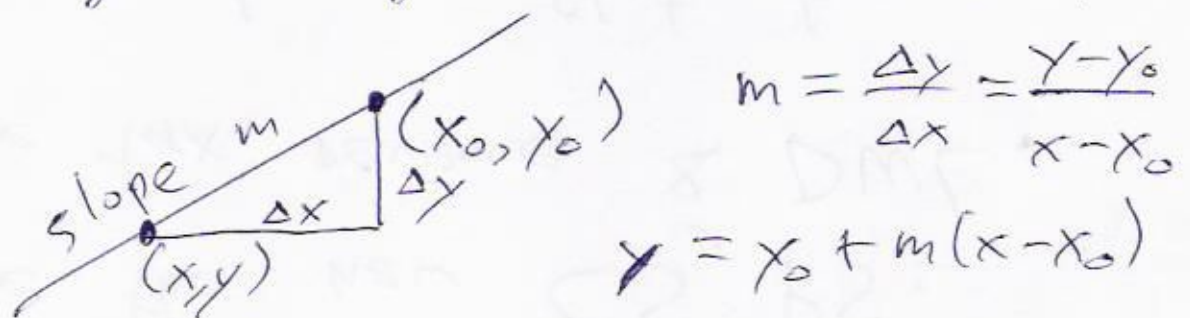 slope m
(x₀, y₀)
Δy
Δx
(x,y)
m = Δy/Δx = y-y₀/x-x₀
y = y₀ + m(x-x₀)